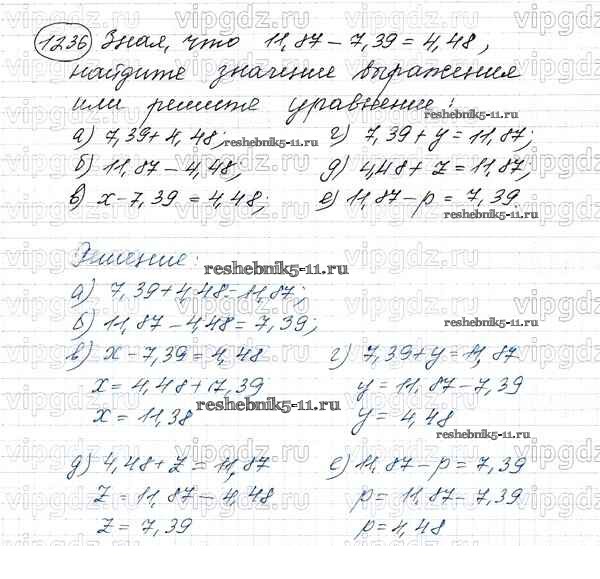 1236 Зная, что 11,87 - 7,39 = 4,48,
найдите значение выражения
или решите уравнение:
а) 7,39 + 4,48; г) 7,39 + y = 11,87;
б) 11,87 - 4,48; д) 4,48 + z = 11,87;
в) x - 7,39 = 4,48; е) 11,87 - p = 7,39
Решение:
а) 7,39 + 4,48 = 11,87;
б) 11,87 - 4,48 = 7,39;
в) x - 7,39 = 4,48 г) 7,39 + y = 11,87
x = 4,48 + 7,39 y = 11,87 - 7,39
x = 11,38 y = 4,48
д) 4,48 + z = 11,87 е) 11,87 - p = 7,39
z = 11,87 - 4,48 p = 11,87 - 7,39
z = 7,39 p = 4,48
reshebnik5-11.ru
reshebnik5-11.ru
reshebnik5-11.ru
reshebnik5-11.ru
reshebnik5-11.ru
reshebnik5-11.ru
vipgdz.ru